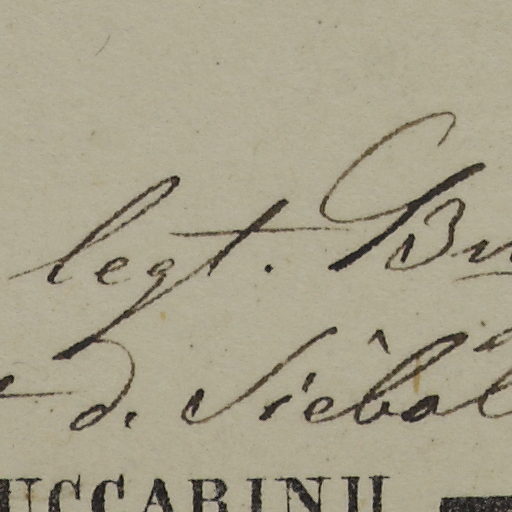 legt. Bü
d. Siebol
UCCARINII